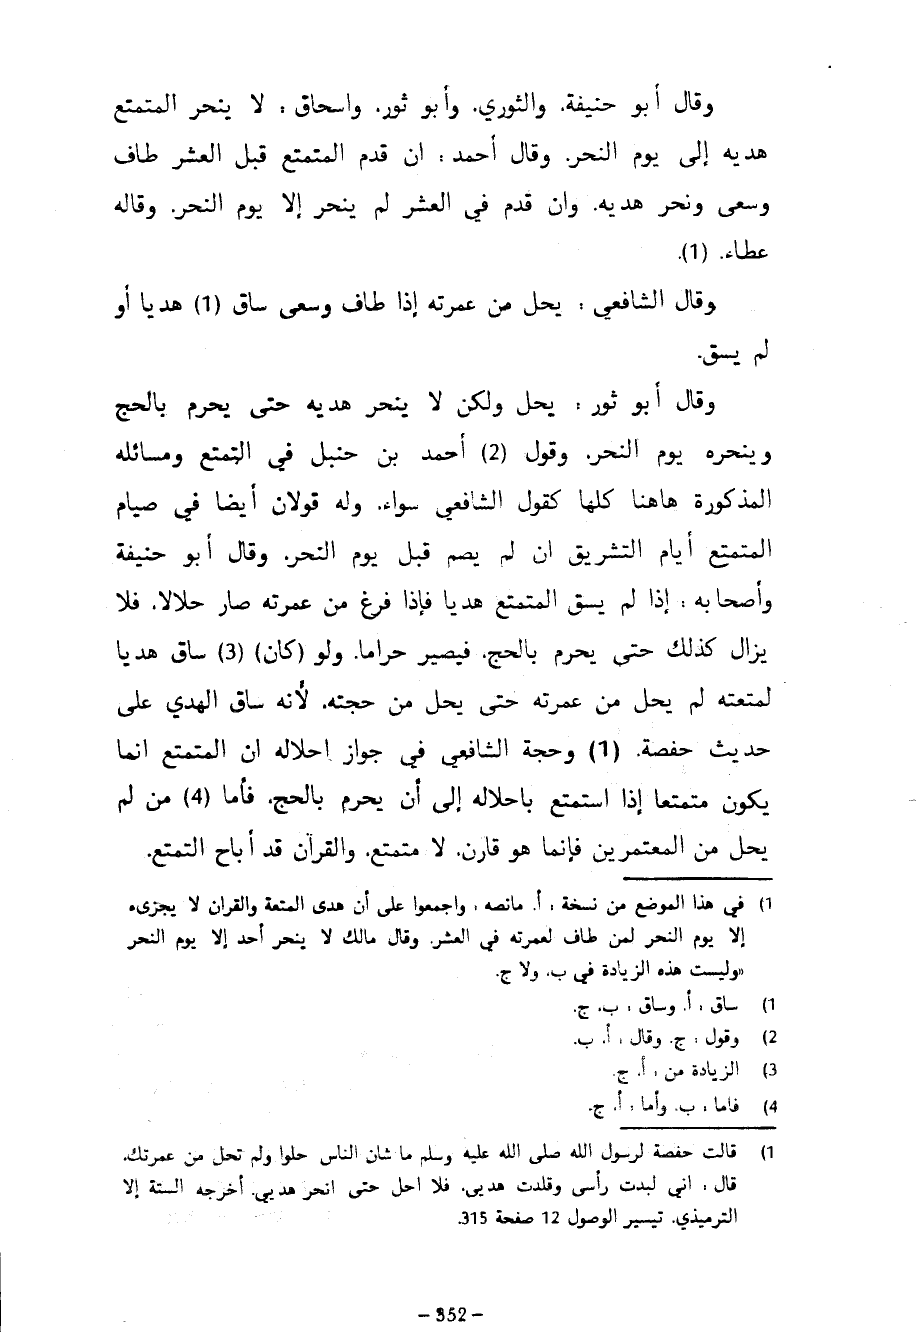 وقال أبو حنيفة، والثوري، وأبو ثور، واسحاق : لا ينحر المتمتع
هديه إلى يوم النحر. وقال أحمد : ان قدم المتمتع قبل العشر طاف
وسعى ونحر هديه، وان قدم في العشر لم ينحر إلا يوم النحر. وقاله
عطاء. (1).
وقال الشافعي : يحل من عمرته إذا طاف وسعى ساق (1) هديا أو
لم يسق.
وقال أبو ثور : يحل ولكن لا ينحر هديه حتى يحرم بالحج
وينحره يوم النحر. وقول (2) أحمد بن حنبل في التمتع ومسائله
المذكورة هاهنا كلها كقول الشافعي سواء. وله قولان أيضا في صيام
المتمتع أيام التشريق ان لم يصم قبل يوم النحر. وقال أبو حنيفة
وأصحابه : إذا لم يسق المتمتع هديا فإذا فرغ من عمرته صار حلالا، فلا
يزال كذلك حتى يحرم بالحج، فيصير حراما. ولو (كان) (3) ساق هديا
لمتعته لم يحل من عمرته حتى يحل من حجته، لأنه ساق الهدي على
حديث حفصة. (1) وحجة الشافعي في جواز احلاله ان المتمتع انما
يكون متمتعا إذا استمتع باحلاله إلى أن يحرم بالحج، فأما (4) من لم
يحل من المعتمرين فإنما هو قارن، لا متمتع، والقرآن قد أباح التمتع.
1) في هذا الموضع من نسخة : أ. مانصه : واجمعوا على أن هدى المتعة والقران لا يجزىء
إلا يوم النحر لمن طاف لعمرته في العشر. وقال مالك لا ينحر أحد إلا يوم النحر
«وليست هذه الزيادة في ب، ولا ج.
1) ساق : أ. وساق : ب، ج.
2) وقول : ج. وقال : أ، ب.
3) الزيادة من : أ. ج.
4) فاما : ب. وأما : أ. ج.
1) قالت حفصة لرسول الله صلى الله عليه وسلم ما شان الناس حلوا ولم تحل من عمرتك،
قال : اني لبدت رأسي وقلدت هديي، فلا احل حتى انحر هديي. أخرجه الستة إلا
الترمذي. تيسير الوصول 12 صفحة 315.
– 352 –